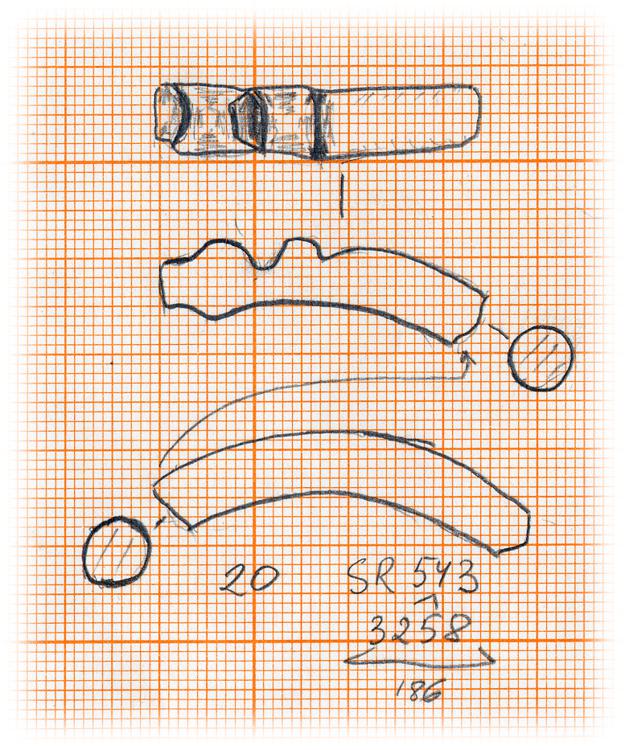 20 SR 543
3258
186